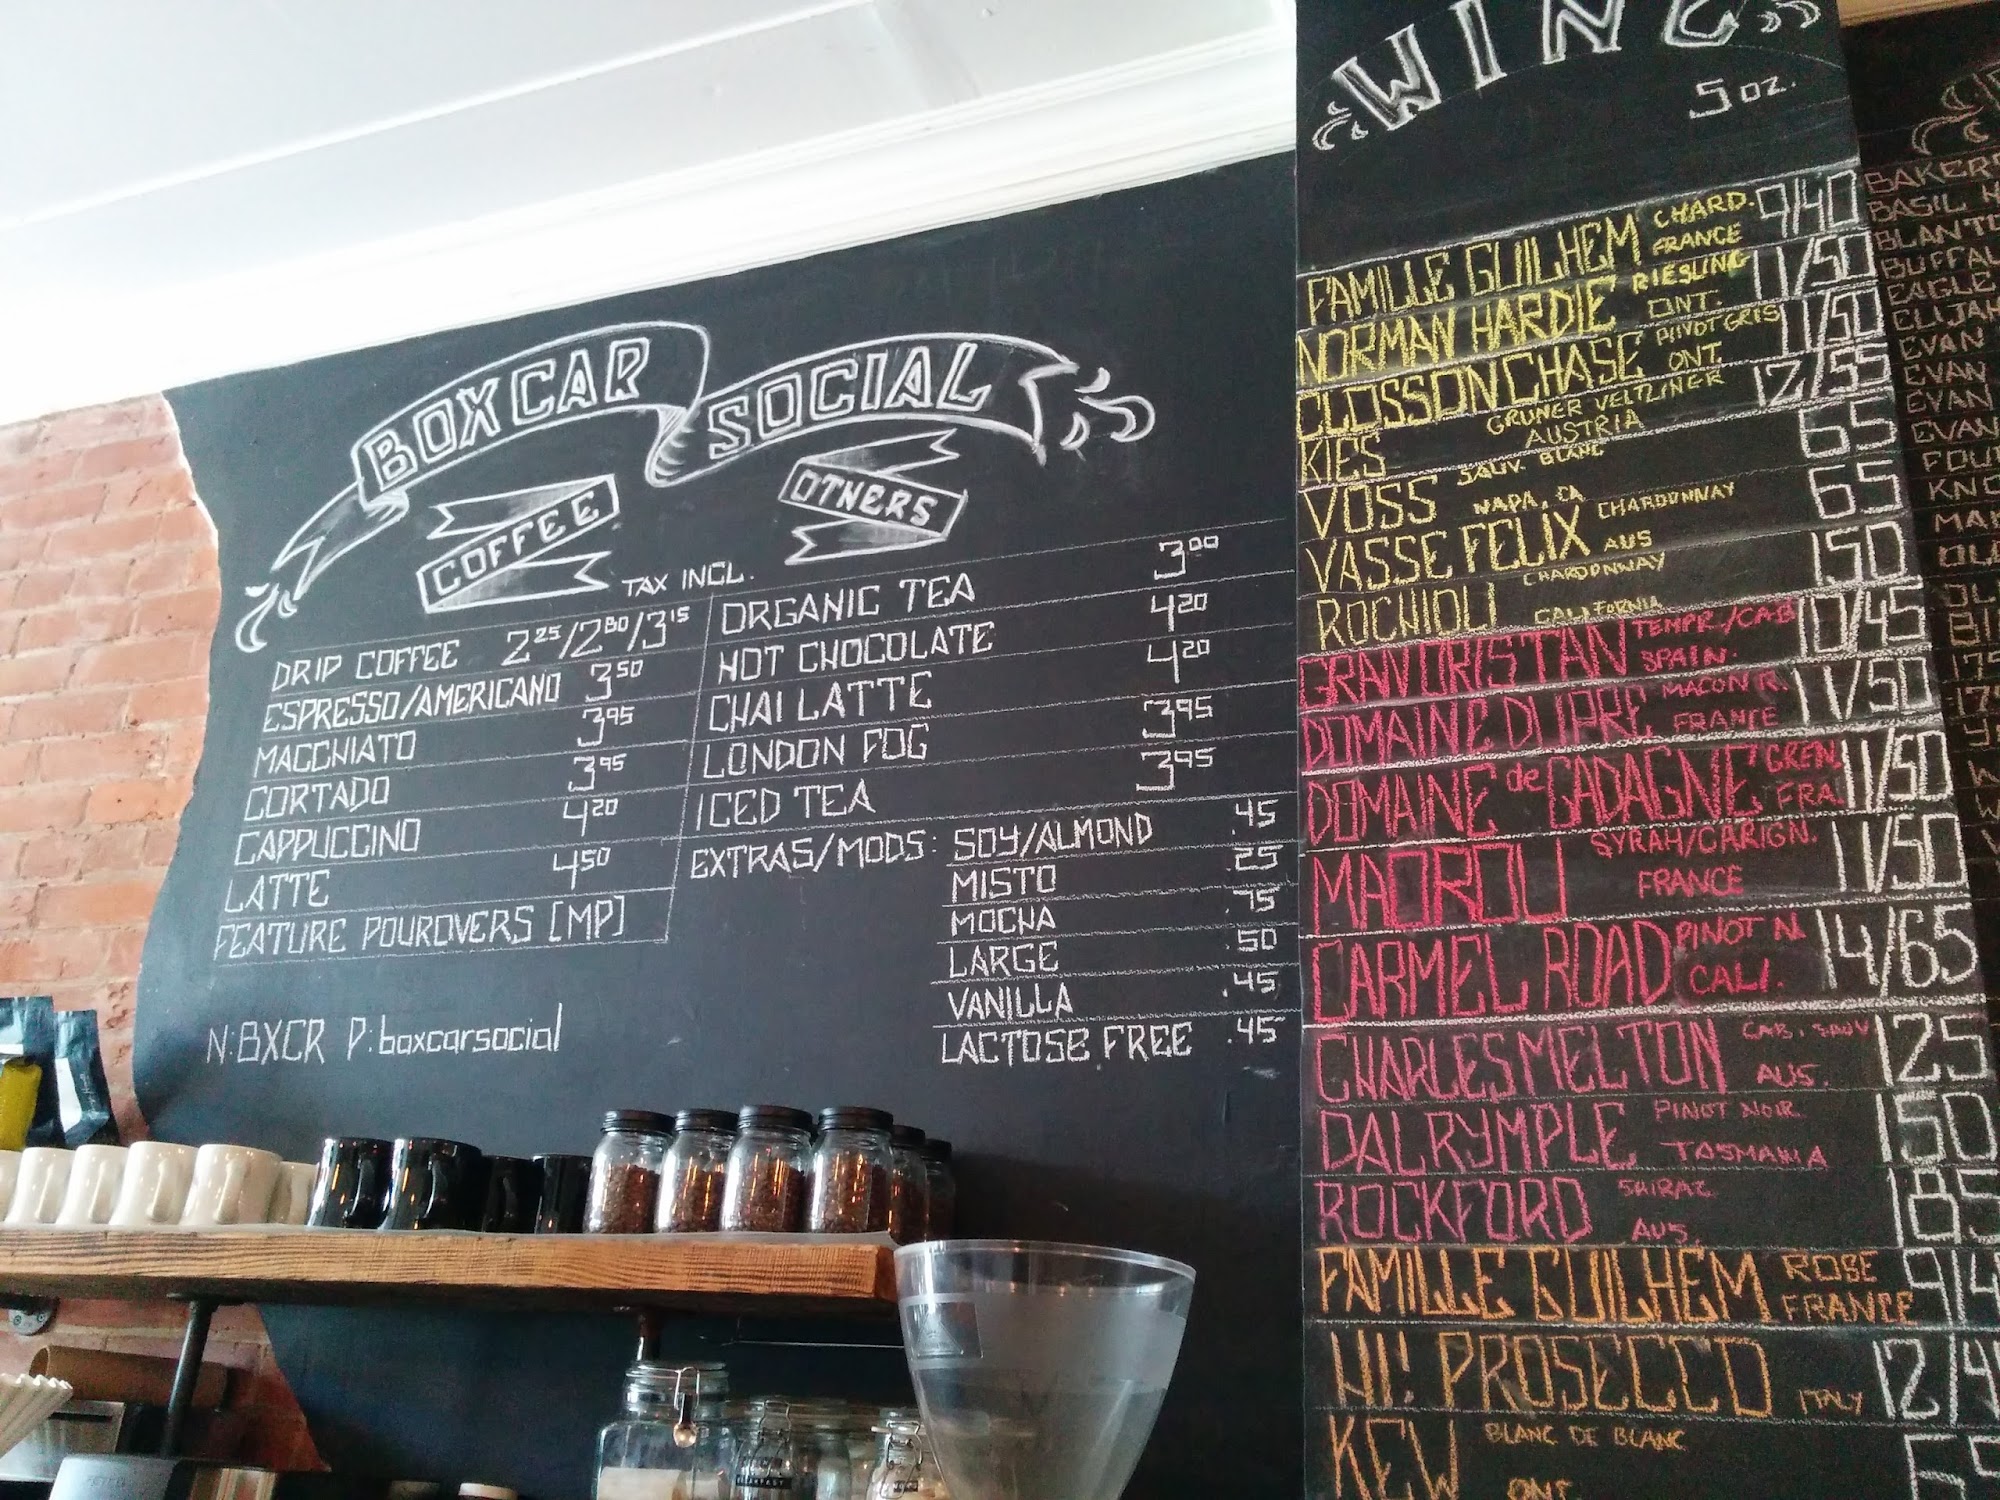 BOXCAR SOCIAL
COFFEE
TAX INCL.
DRIP COFFEE 2 25/2 80/3 15
ESPRESSO/AMERICANO 3 50
MACCHIATO 3 95
CORTADO 3 95
CAPPUCCINO 4 20
LATTE 4 50
FEATURE POUROVERS [MP]
N:BXCR P:boxcarsocial
OTHERS
ORGANIC TEA 3 00
HOT CHOCOLATE 4 20
CHAI LATTE 4 20
LONDON FOG 3 95
ICED TEA 3 95
EXTRAS/MODS: SOY/ALMOND .45
MISTO .25
MOCHA .75
LARGE .50
VANILLA .45
LACTOSE FREE .45
WINE
5 oz.
FAMILLE GUILHEM CHARD. FRANCE 9/40
NORMAN HARDIE RIESLING ONT. 11/50
CLOSSON CHASE PINOT GRIS ONT. 11/50
KIES GRUNER VELTLINER AUSTRIA 12/55
VOSS SAUV. BLANC NAPA, CA 65
VASSE FELIX CHARDONNAY AUS 65
ROCHIOLI CHARDONNAY CALIFORNIA 150
GRAN ORISTAN TEMPR./CAB SPAIN. 10/45
DOMAINE DUPRE MACON R. FRANCE 11/50
DOMAINE de CADAGNE GREN. FRA. 11/50
MAOROU SYRAH/CARIGN. FRANCE 11/50
CARMEL ROAD PINOT N. CALI. 14/65
CHARLES MELTON CAB. SAUV AUS. 125
DALRYMPLE PINOT NOIR TASMANIA 150
ROCKFORD SHIRAZ AUS. 185
FAMILLE GUILHEM ROSE FRANCE 9/4
HI! PROSECCO ITALY 12/
KEW BLANC DE BLANC ONT. 65
BAKER
BASIL H
BLANTO
BUFFAL
EAGLE
ELIJAH
EVAN
EVAN
EVAN
EVAN
FOU
KNO
MAK
OLD